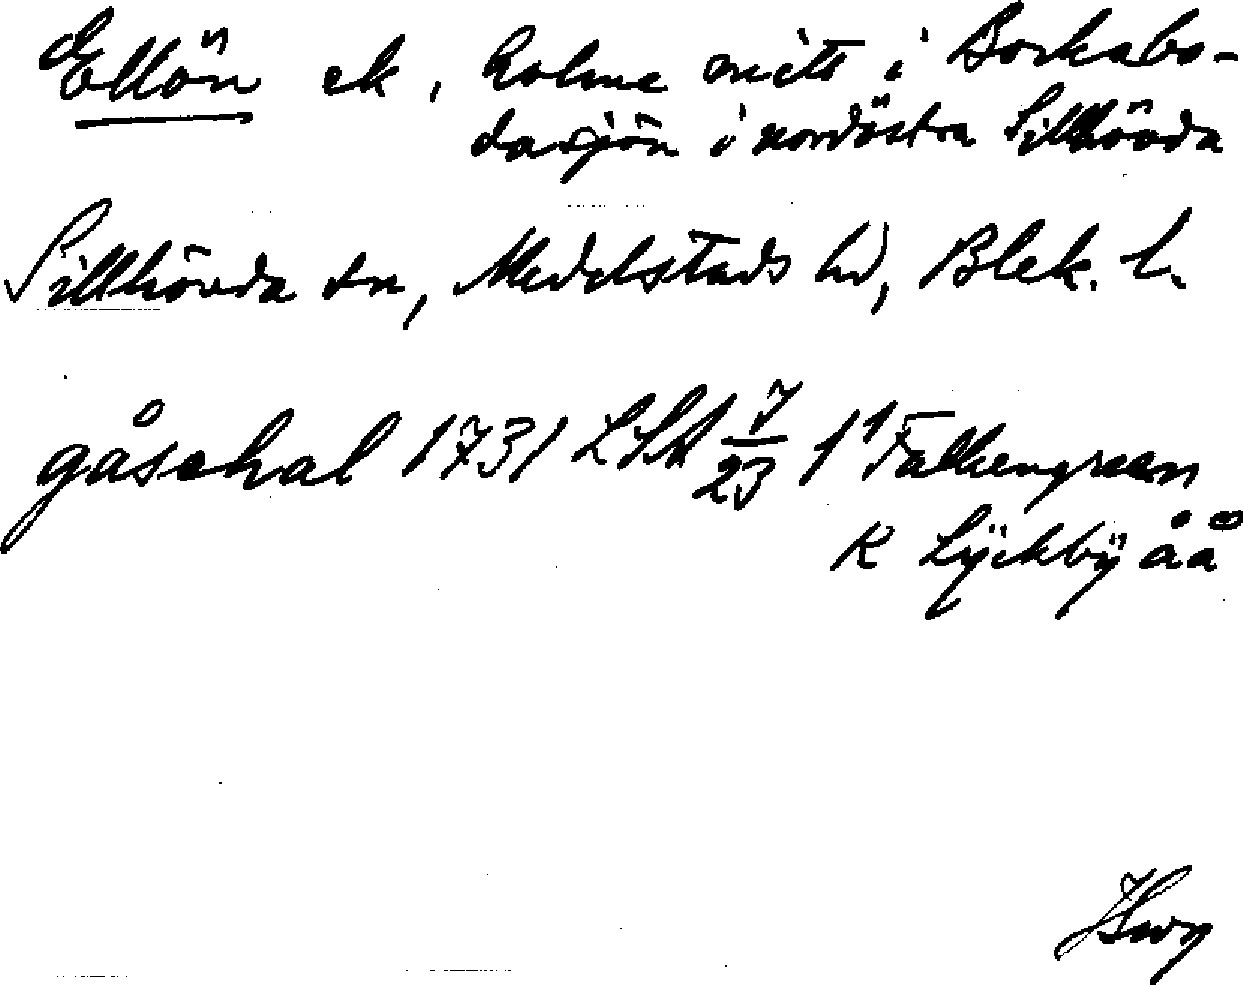 Ellön ek, holme mitt i Borkabo-
dasjön i nordöstra Sillhövda
Sillhövda sn, Medelstads hd, Blek. l.
gåsehal 1731 LSA 7/23 1¹ Falkengreen
K Lÿckbÿ åå